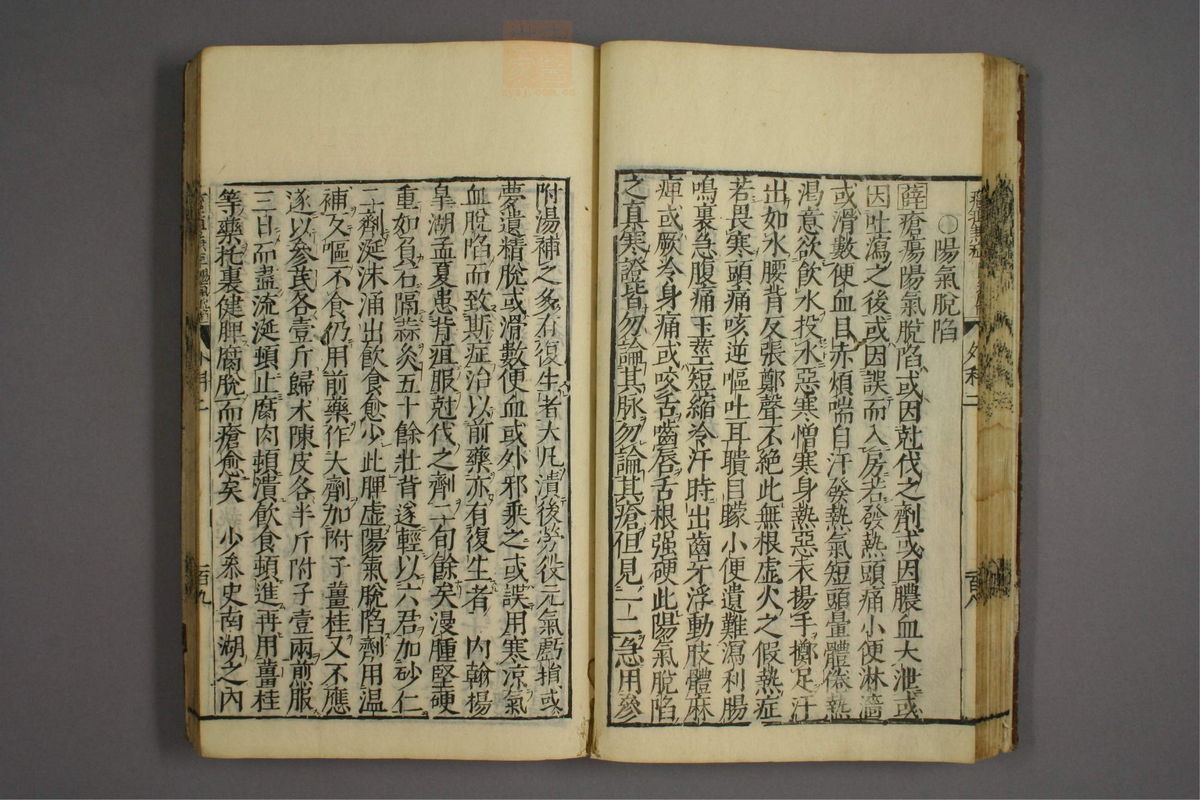 ○陽氣脫陷
薛瘡瘍陽氣脫陷或因尅伐之劑或因膿血大泄或
因吐瀉之後或因誤而入房若發熱頭痛小便淋濇
或滑數便血目赤煩喘自汗發熱氣短頭暈體倦熱
渴意欲飲水投水惡寒憎寒身熱惡衣揚手擲足汗
出如水腰背反張鄭聲不絕此無根虛火之假熱症
若畏寒頭痛咳逆嘔吐耳聵目矇小便遺難瀉利腸
鳴裏急腹痛玉莖短縮冷汗時出齒牙浮動肢體麻
痺或厥冷身痛或咬舌齒唇舌根强硬此陽氣脫陷
之真寒證皆勿論其脉勿論其瘡但見一二急用參
百八
附湯補之多有復生者大凡潰後勞役元氣虧損或
夢遺精脫或滑數便血或外邪乘之或誤用寒凉氣
血脫陷而致斯症治以前藥亦有復生者 内翰楊
皐湖孟夏患背疽服尅伐之劑二旬餘矣漫腫堅硬
重如負石隔蒜灸五十餘壯背遂輕以六君加砂仁
二劑涎沫涌出飲食愈少此脾虛陽氣脫陷劑用温
補又嘔不食仍用前藥作大劑加附子薑桂又不應
遂以參芪各壹斤歸术陳皮各半斤附子壹兩煎服
三日而盡流涎頓止腐肉頓潰飲食頓進再用薑桂
等藥托裏健脾腐脫而瘡愈矣 少叅史南湖之内
百九